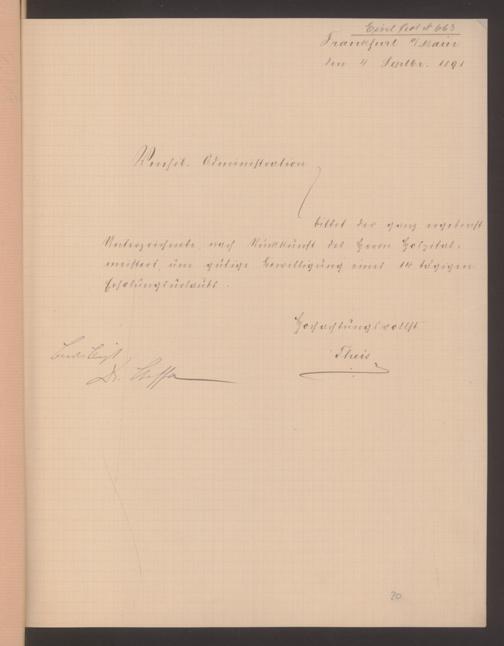 Frankfurt a/Main
den 4 Septbr. 1891
Administration
bittet der ganz ergebenst
Unterzeichnete, nach Rückkunft des Herrn Hospital-
meisters, um gütige Bewilligung eines 14 tägigen
Erholungsurlaubs.
Hochachtungsvollst
Theis
Dr.
20